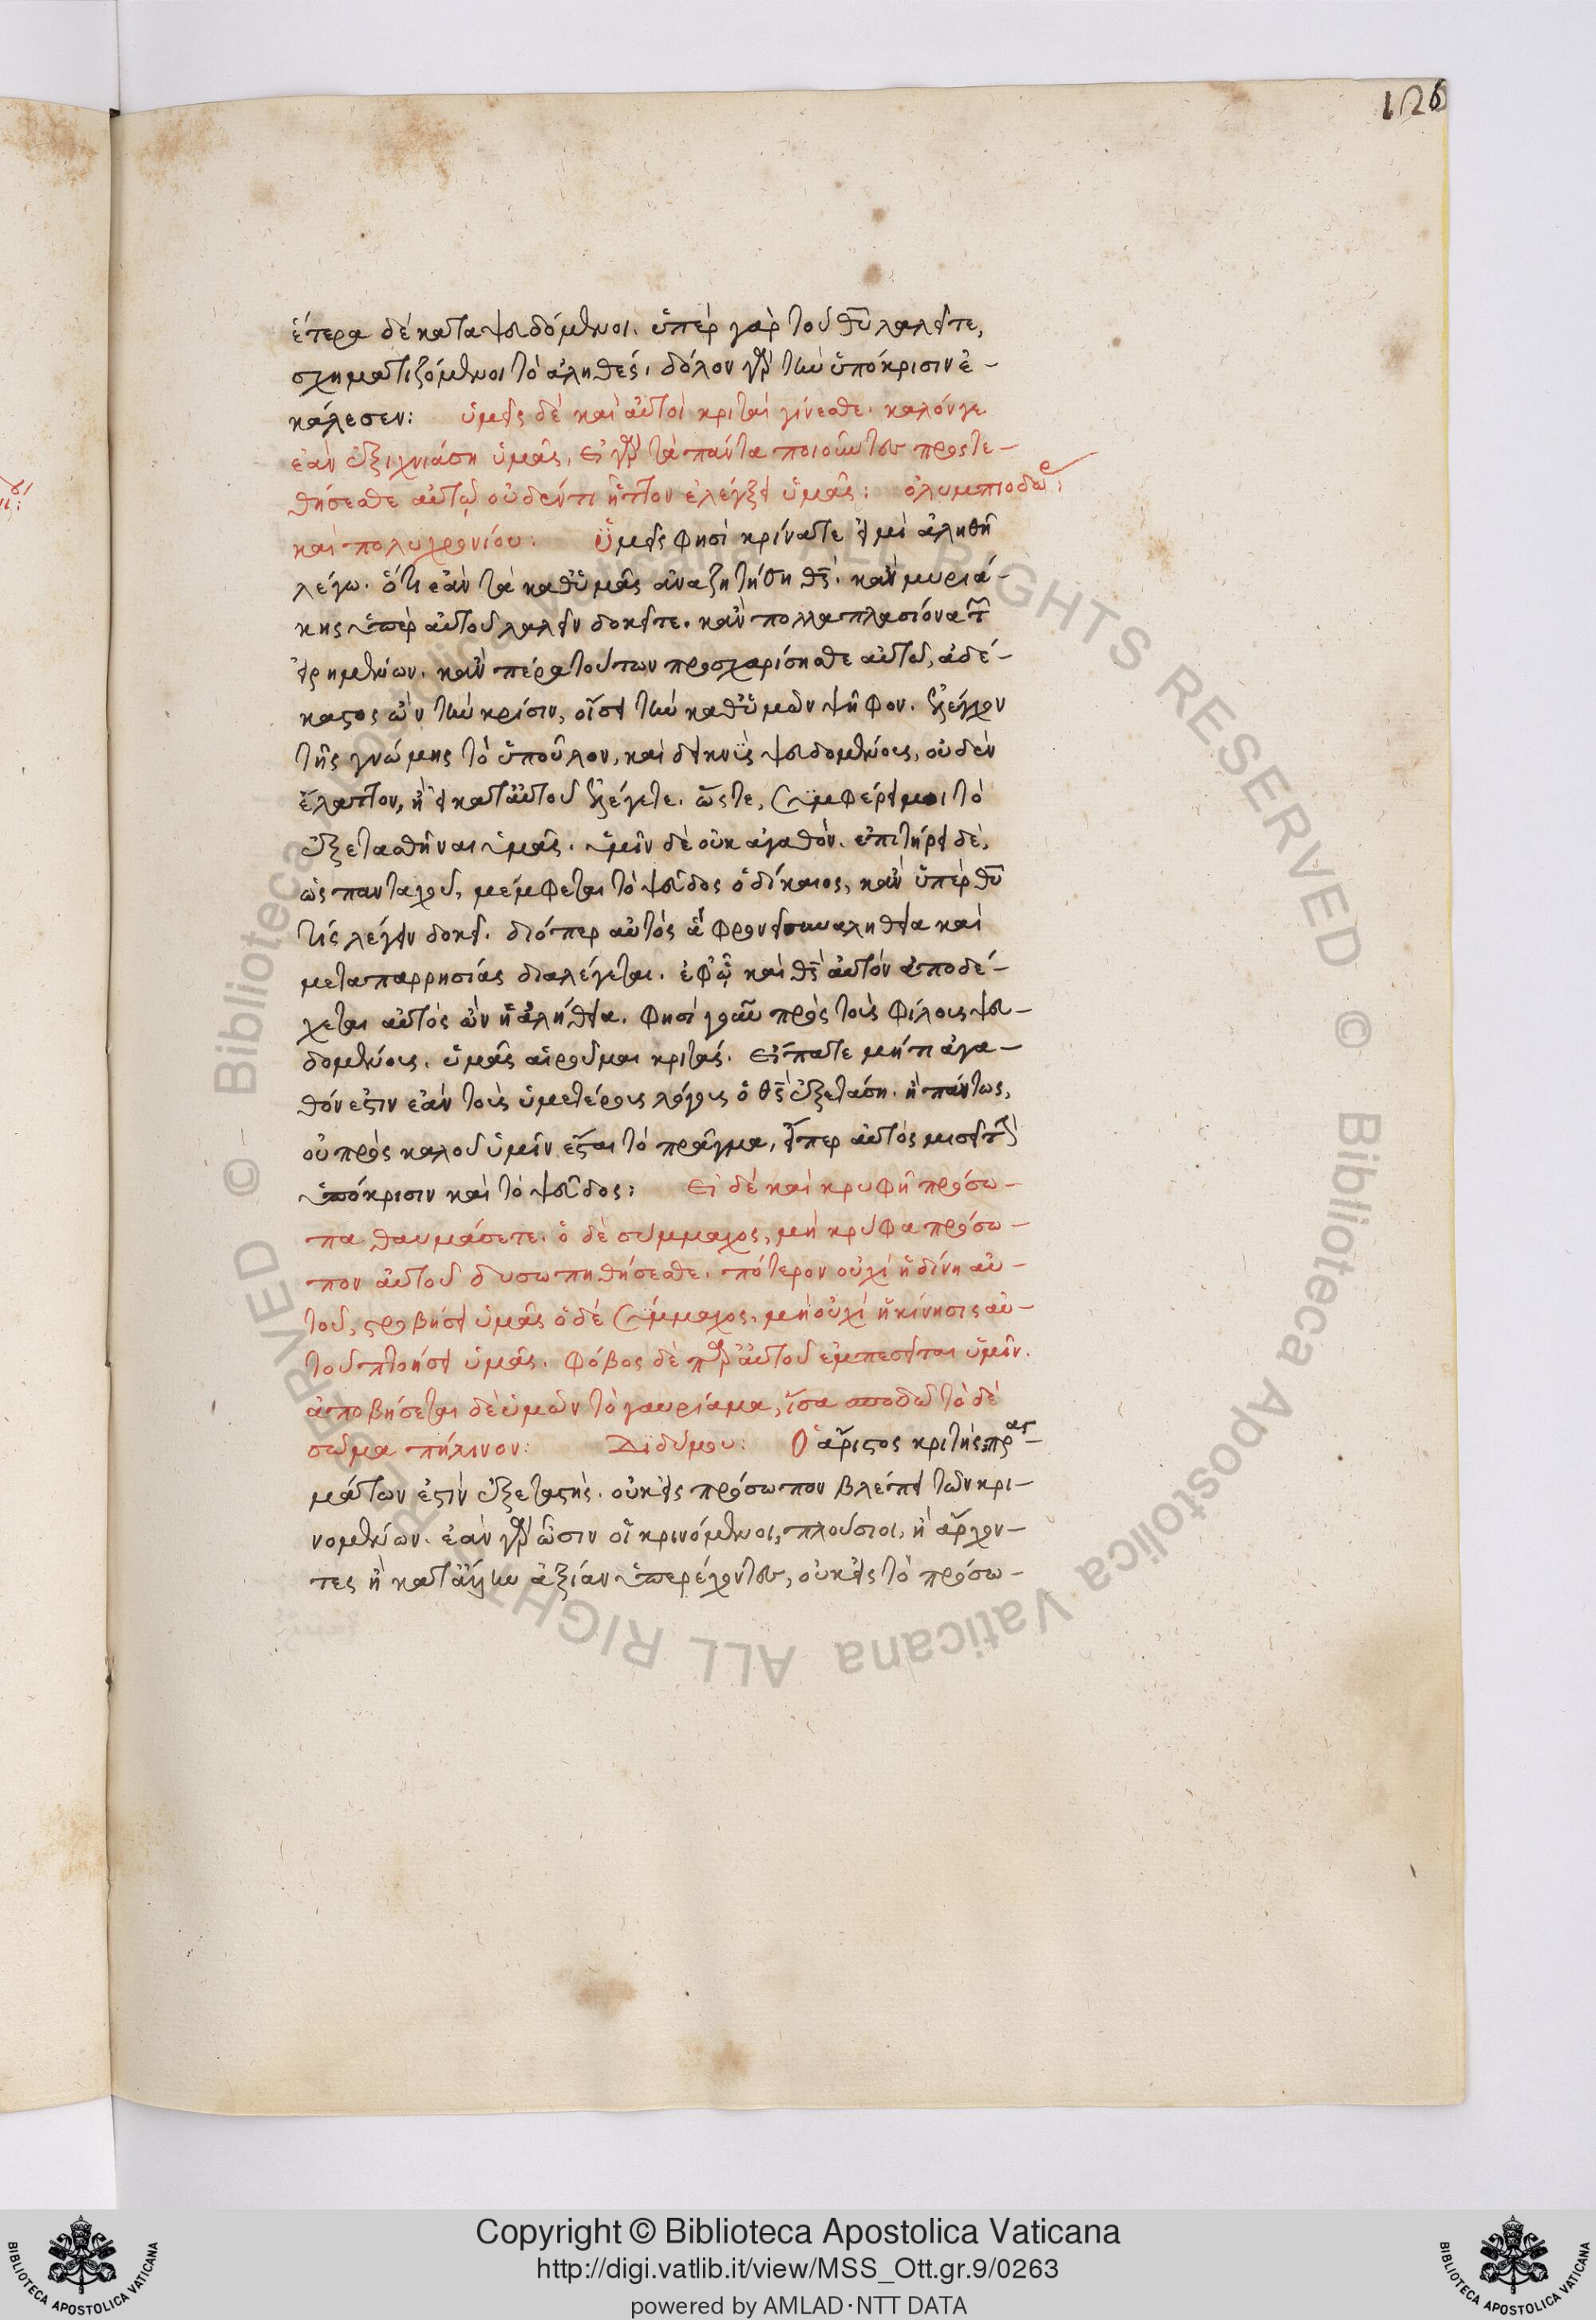 126
ἕτερα δὲ καταψευδόμενοι. ὑπὲρ γὰρ τοῦ θυ λαλεῖτε,
σχηματιζόμενοι τὸ ἀληθές. δόλον γὰρ τὴν ὑπόκρισιν ἐ-
κάλεσεν: ὑμεῖς δὲ καὶ αὐτοὶ κριταὶ γίνεσθε. καλόν γε
ἐὰν ἐξιχνιάση ὑμᾶς, εἰ γὰρ τὰ πάντα ποιοῦντες προστε-
θήσεσθε αὐτῷ οὐδέν τι ἧττον ἐλέγξει ὑμᾶς: ὀλυμπιοδώρ:
καὶ πολυχρονίου: Ὑμεῖς φησὶ κρίνατε εἰ μὴ ἀληθῆ
λέγω. ὅτι ἐὰν τὰ καθ' ὑμᾶς ἀναζητήση θς. κἂν μυριά-
κις ὑπὲρ αὐτοῦ λαλεῖν δοκεῖτε. κἂν πολλαπλασίονα τ
εἰρημένων. κἂν πέρα τούτων προσχαρίσησθε αὐτῷ, ἀδέ-
καστος ὢν τὴν κρίσιν, οἴσει τὴν καθ' ὑμῶν ψῆφον. ἐλέγχων
τῆς γνώμης τὸ ὕπουλον, καὶ δεικνὺς ψευδομένους, οὐδὲν
ἔλαττον, ἢ εἰ κατ' αὐτοῦ ἐλέγετε. ὥστε, συμφέρει μοι τὸ
ἐξετασθῆναι ὑμᾶς. ὑμῖν δὲ οὐκ ἀγαθόν. ἐπιτήρει δὲ,
ὡς πανταχοῦ, μέμφεται τὸ ψεῦδος ὁ δίκαιος, κἂν ὑπὲρ θυ
τίς λέγειν δοκεῖ. διόπερ αὐτὸς ἃ φρονεῖ συναληθεία καὶ
μετα παρρησίας διαλέγεται. ἐφ' ᾧ καὶ θς αὐτὸν ἀποδέ-
χεται αὐτὸς ὢν ἡ ἀλήθεια. φησὶ γοῦν πρὸς τοὺς φίλους ψευ-
δομένους. ὑμᾶς αἱροῦμαι κριτάς. εἴπατε μήτι ἀγα-
θόν ἐστιν ἐὰν τοὺς ὑμετέρους λόγους ὁ θς ἐξετάση. ἢ πάντως,
οὐ πρὸς καλοῦ ὑμῖν ἔσται τὸ πρᾶγμα, εἴπερ αὐτὸς μισεῖ τὴν
ὑπόκρισιν καὶ τὸ ψεῦδος: Εἰ δὲ καὶ κρυφῆ πρόσω-
πα θαυμάσετε. ὁ δὲ σύμμαχος, μὴ κρύφα πρόσω-
πον αὐτοῦ δυσωπηθήσεσθε. πότερον οὐχὶ ἡ δίνη αὐ-
τοῦ, στροβήσει ὑμᾶς ὁ δὲ σύμμαχος, μὴ οὐχὶ ἡ κίνησις αὐ-
τοῦ πτοήσει ὑμᾶς. φόβος δὲ παρ' αὐτοῦ ἐμπεσεῖται ὑμῖν.
ἀποβήσεται δὲ ὑμῶν τὸ γαυρίαμα, ἴσα σποδῷ τὸ δὲ
σῶμα πήλινον: Διδύμου: Ὁ ἄριστος κριτὴς πραγ-
μάτων ἐστὶν ἐξεταστής. οὐκ εἰς πρόσωπον βλέπει τῶν κρι-
νομένων. ἐὰν γὰρ ὦσιν οἱ κρινόμενοι, πλούσιοι, ἢ ἄρχον-
τες ἢ κατ' ἄλλην ἀξίαν ὑπερέχοντες, οὐκ εἰς τὸ πρόσω-
© Biblioteca Apostolica Vaticana ALL RIGHTS RESERVED © Biblioteca Apostolica Vaticana ALL RIGHTS RESERVED
Copyright © Biblioteca Apostolica Vaticana
http://digi.vatlib.it/view/MSS_Ott.gr.9/0263
powered by AMLAD·NTT DATA
BIBLIOTECA APOSTOLICA VATICANA
BIBLIOTECA APOSTOLICA VATICANA